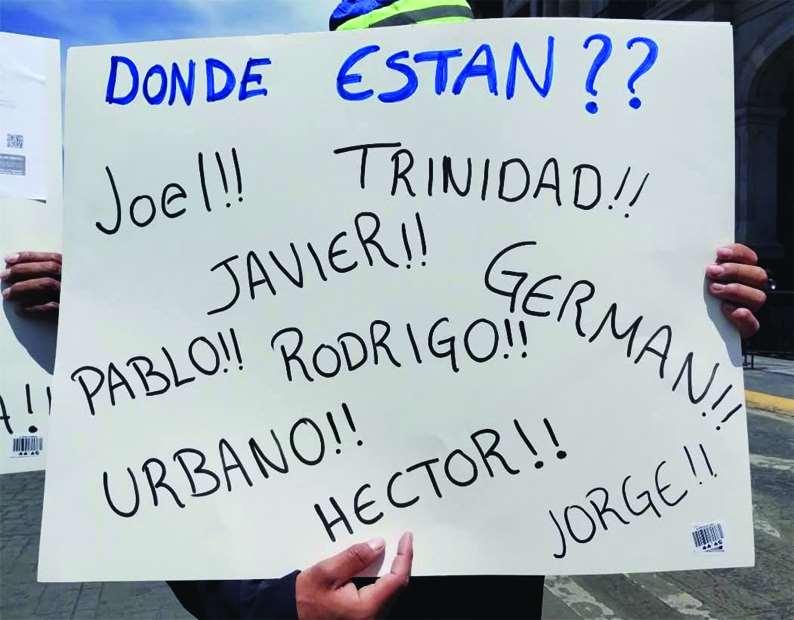 DONDE ESTAN??
Joel!! TRINIDAD!!
JAVIER!!
GERMAN!!
PABLO!! RODRIGO!!
URBANO!!
HECTOR!!
JORGE!!